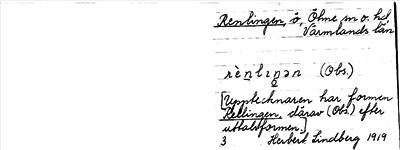 Renlingen, ö, Ölme sn o. hd
Värmlands län
rènlıŋən (Obs.)
[Upptecknaren har formen
Rellingen, därav (Obs.) efter
uttalsformen.]
3 Herbert Lindberg 1919